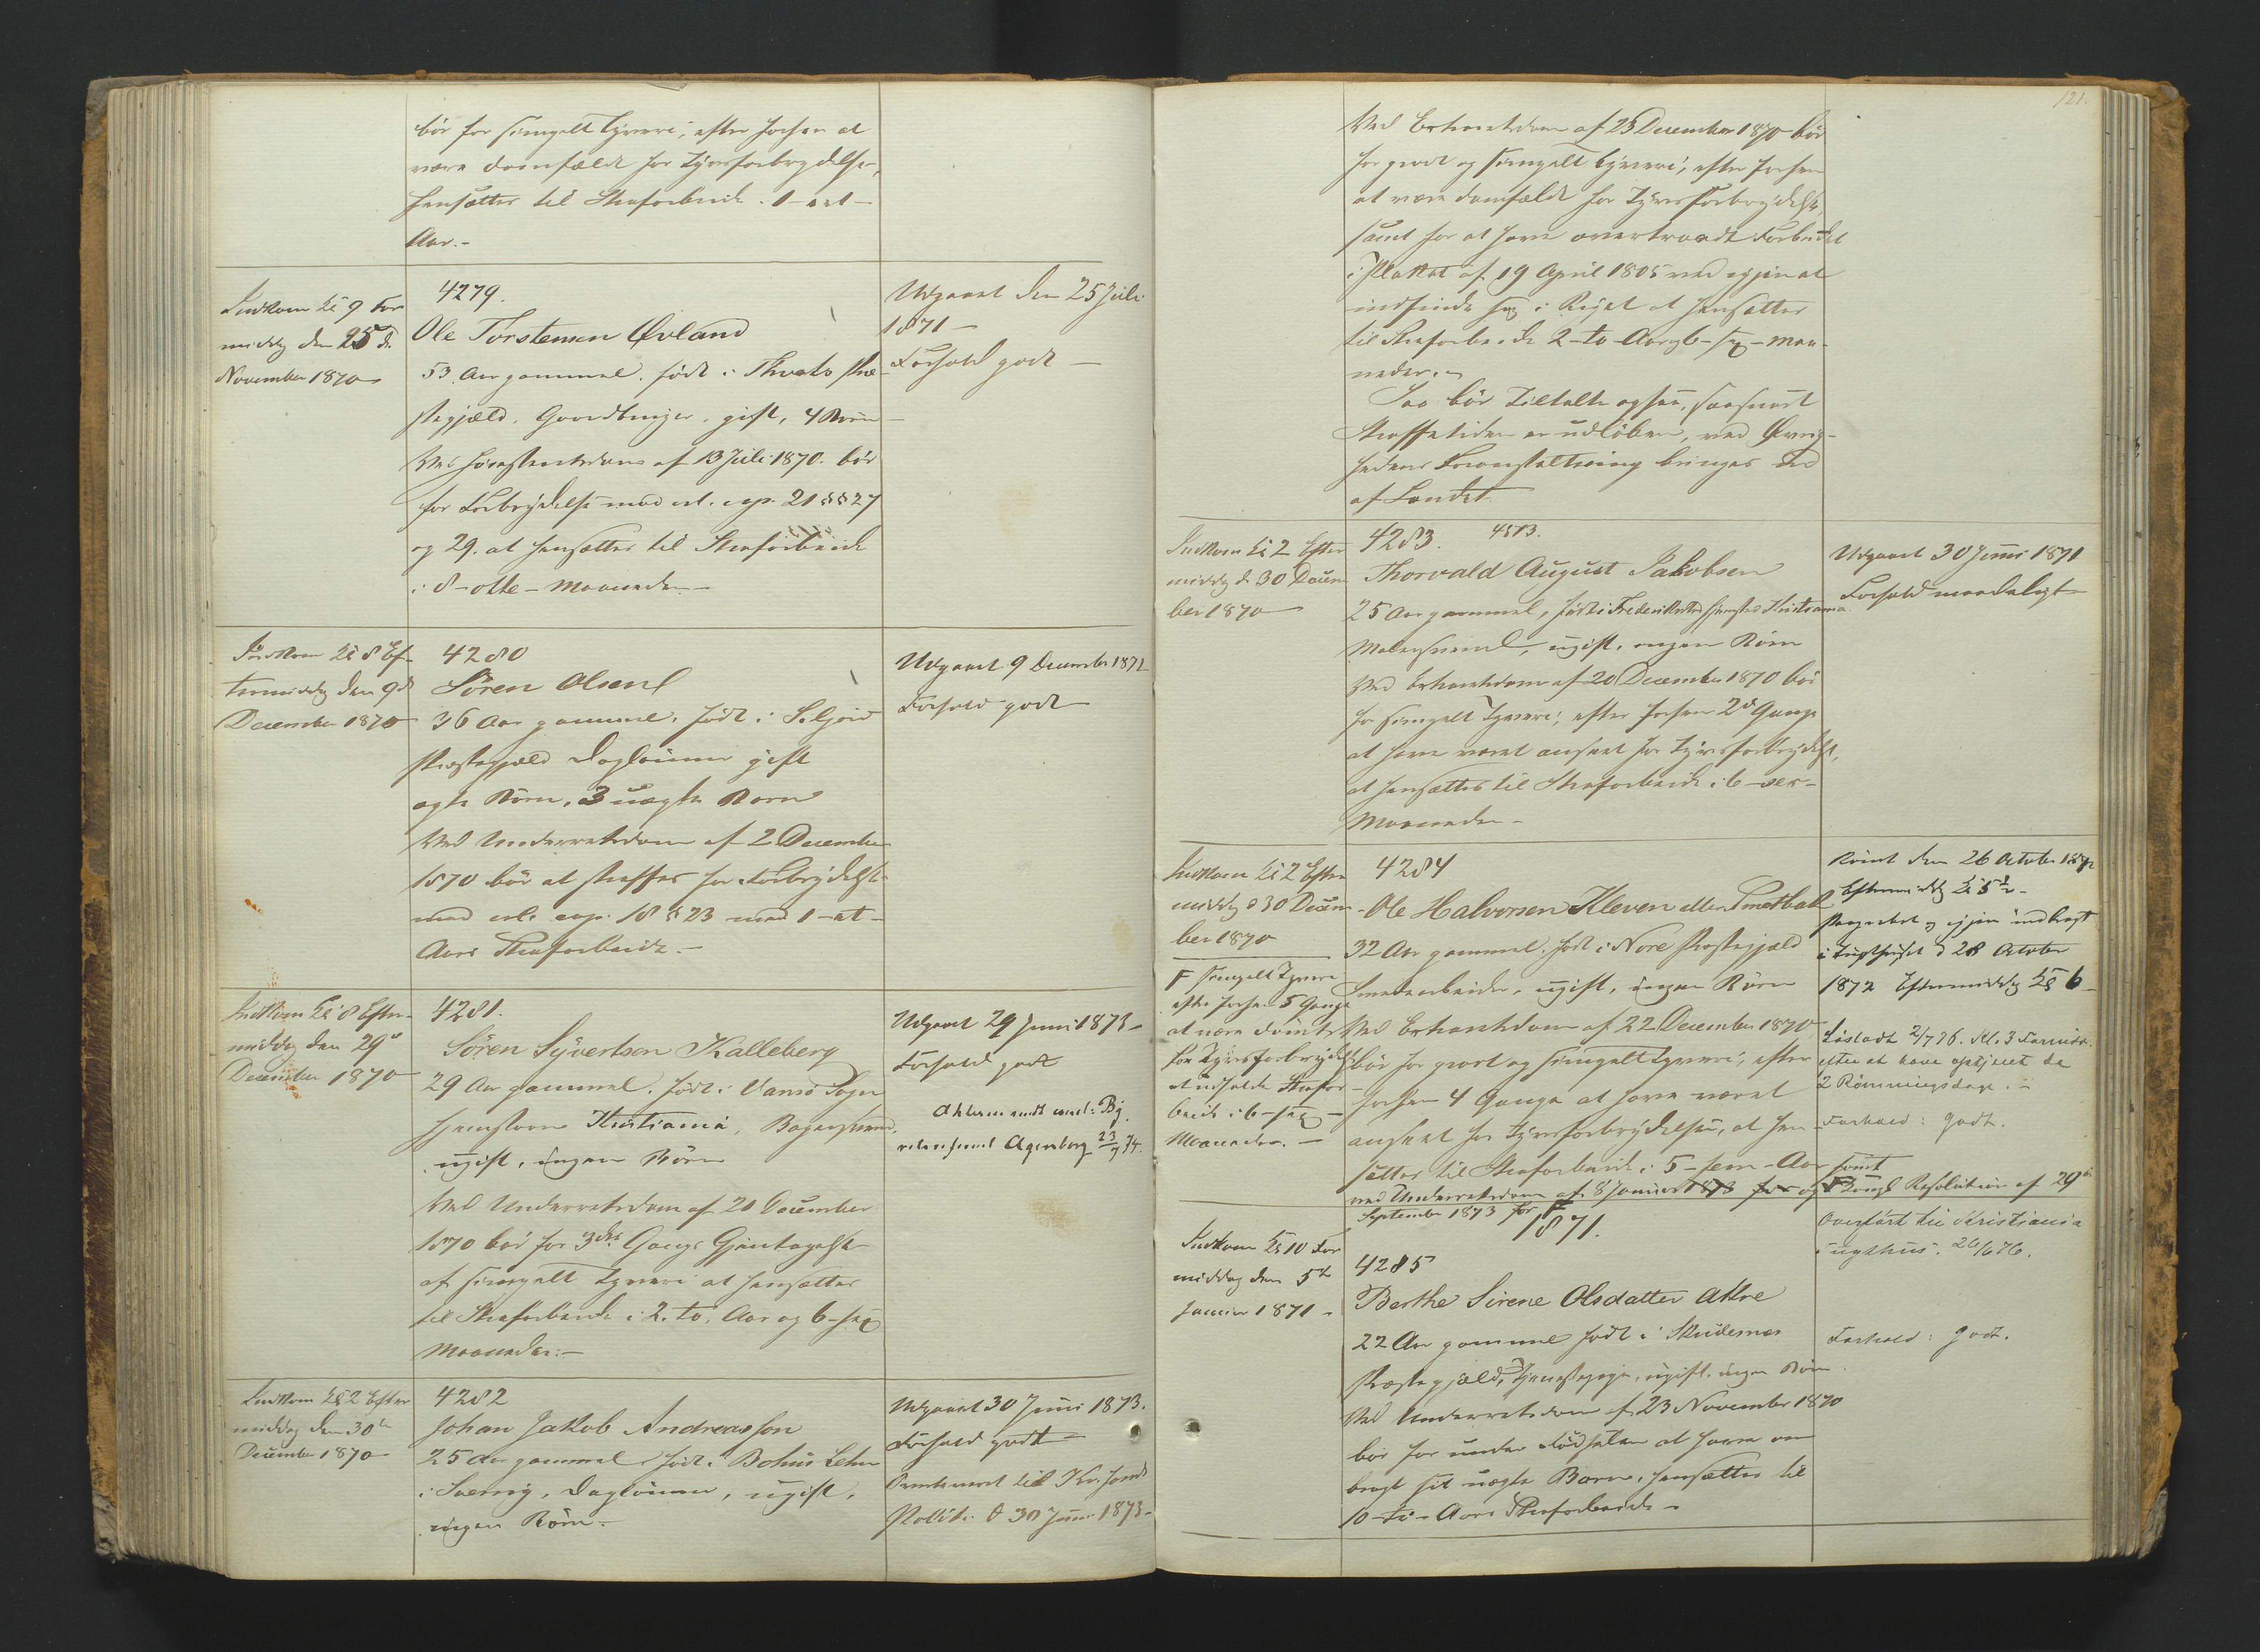 bör for simpelt Tyveri, efter forhen at
være domfældt for Tyvsforbrydelse,
hensættes til Strafarbeide i 1 - et -
Aar. -
Indkom Kl 9 For
middag den 25 d.
November 1870
4279.
Ole Torstensen Övland
53 Aar gammel. født i Præ-
stegjæld. Gaardbruger, gift, 4 Börn
Ved Höiesteretsdom af 13 Juli 1870. bör
for Forbrydelse mod crl. cap. 21 §§ 27
og 29. at hensættes til Strafarbeide
i 8 - otte - Maaneder. -
Udgaaet den 25 Juli
1871 -
Forhold godt -
Indkom Kl 8 Ef-
termiddag den 9 d
December 1870
4280
Sören Olsen
36 Aar gammel. født i Seljord
Præstegjæld Daglönner gift
ægte Börn, 3 uægte Born
Ved Underretsdom af 2 December
1870 bör at straffes for Forbrydelse
mod crl. cap. 18 § 23 med 1 - et -
Aars Strafarbeide. -
Udgaaet 9 December 1871
Forhold godt
Indkom Kl 8 Efter-
middag den 29 d
December 1870
4281.
Sören Syvertsen Kalleberg
29 Aar gammel. født i Vansö Sogn
hjemstavn Kristiania, Bagersvend,
ugift, ingen Börn
Ved Underretsdom af 20 December
1870 bör for 3die Gangs Gjentagelse
af simpelt Tyveri at hensættes
til Strafarbeide i 2. to. Aar og 6 - sex
Maaneder. -
Udgaaet 29 Juni 1873 -
Forhold godt
Agersborg 23/9 74.
Indkom Kl 2 Efter
middag den 30 te
December 1870
4282
Johan Jakob Andreasson
25 Aar gammel født i Bohus Lehn
i Sverrig, Daglönner, ugift,
ingen Börn. -
Udgaaet 30 Juni 1873.
Forhold godt -
til Kr. sands
Politi d 30 Juni 1873 -
121.
Ved Extraretsdom af 23 December 1870 bör
for grovt og simpelt Tyveri, efter forhen
at være domfældt for Tyvsforbrydelse,
samt for at have overtraadt Forbudet
i Plakat af 19 April 1805 mod igjen at
indfinde sig i Riget at hensættes
til Strafarbeide 2 - to - Aar og 6 - sex - Maa-
neder. -
Saa bör Tiltalte ogsaa, saasnart
Straffetiden er udlöben, ved Övrig-
hedens Foranstaltning bringes ud
af Landet
Indkom Kl 2 Efter
middag d 30 Decem
ber 1870
4283. 4573.
Thorvald August Jakobsen
25 Aar gammel, født i Frederiksstad hjemsted Kristiania.
Malersvend, ugift, ingen Börn
Ved Extraretsdom af 20 December 1870 bör
for simpelt Tyveri, efter forhen 2 d Gange
at have været anseet for Tyvsforbrydelse,
at hensættes til Strafarbeide i 6 - sex -
Maaneder -
Udgaaet 30 Juni 1871
Forhold maadeligt
Indkom Kl 2 Efter
middag d 30 Decem
ber 1870
F simpelt Tyveri
efter forhen 5 Gange
at være domt
for Tyvsforbrydelse
at udholde Strafar-
beide i 6 - sex -
Maaneder. -
4284
Ole Halvorsen Kleven eller Smetbak
32 Aar gammel. født i Nore Præstegjæld
ugift, ingen Börn
Ved Extraretsdom af 22 December 1870
bör for grovt og simpelt Tyveri, efter
forhen 4 Gange at have været
anseet for Tyvsforbrydelser, at hen-
sættes til Strafarbeide i 5 - fem - Aar samt
ved Underretsdom af 8 Januar 1873 for og Kongl Resolution af 29 de
September 1873 for F
Römt den 26 October 1872
Eftermiddag Kl 5 1/2 -
Paagrebet og igjen indbragt
i Tugthuset d 28 October
1872 Eftermiddag Kl 6 -
Lösladt 2/7 76. Kl. 3 Formidd.
efter at have aftjent de
2 Römningsdage. -
Forhold: Godt.
1871.
Overfört til Kristiania
Tugthus. 26/6 76.
Indkom Kl 10 For
middag den 5 te
Januar 1871 -
4285
Berthe Sirene Olsdatter Akre
22 Aar gammel født i Skudesnes
Præstegjæld, Tjenestepige, ugift, ingen Börn.
Ved Underretsdom af 23 November 1870
bör for under Födselen at have om
bragt sit uægte Barn, hensættes til
10 - ti - Aars Strafarbeide -
Forhold: Godt.